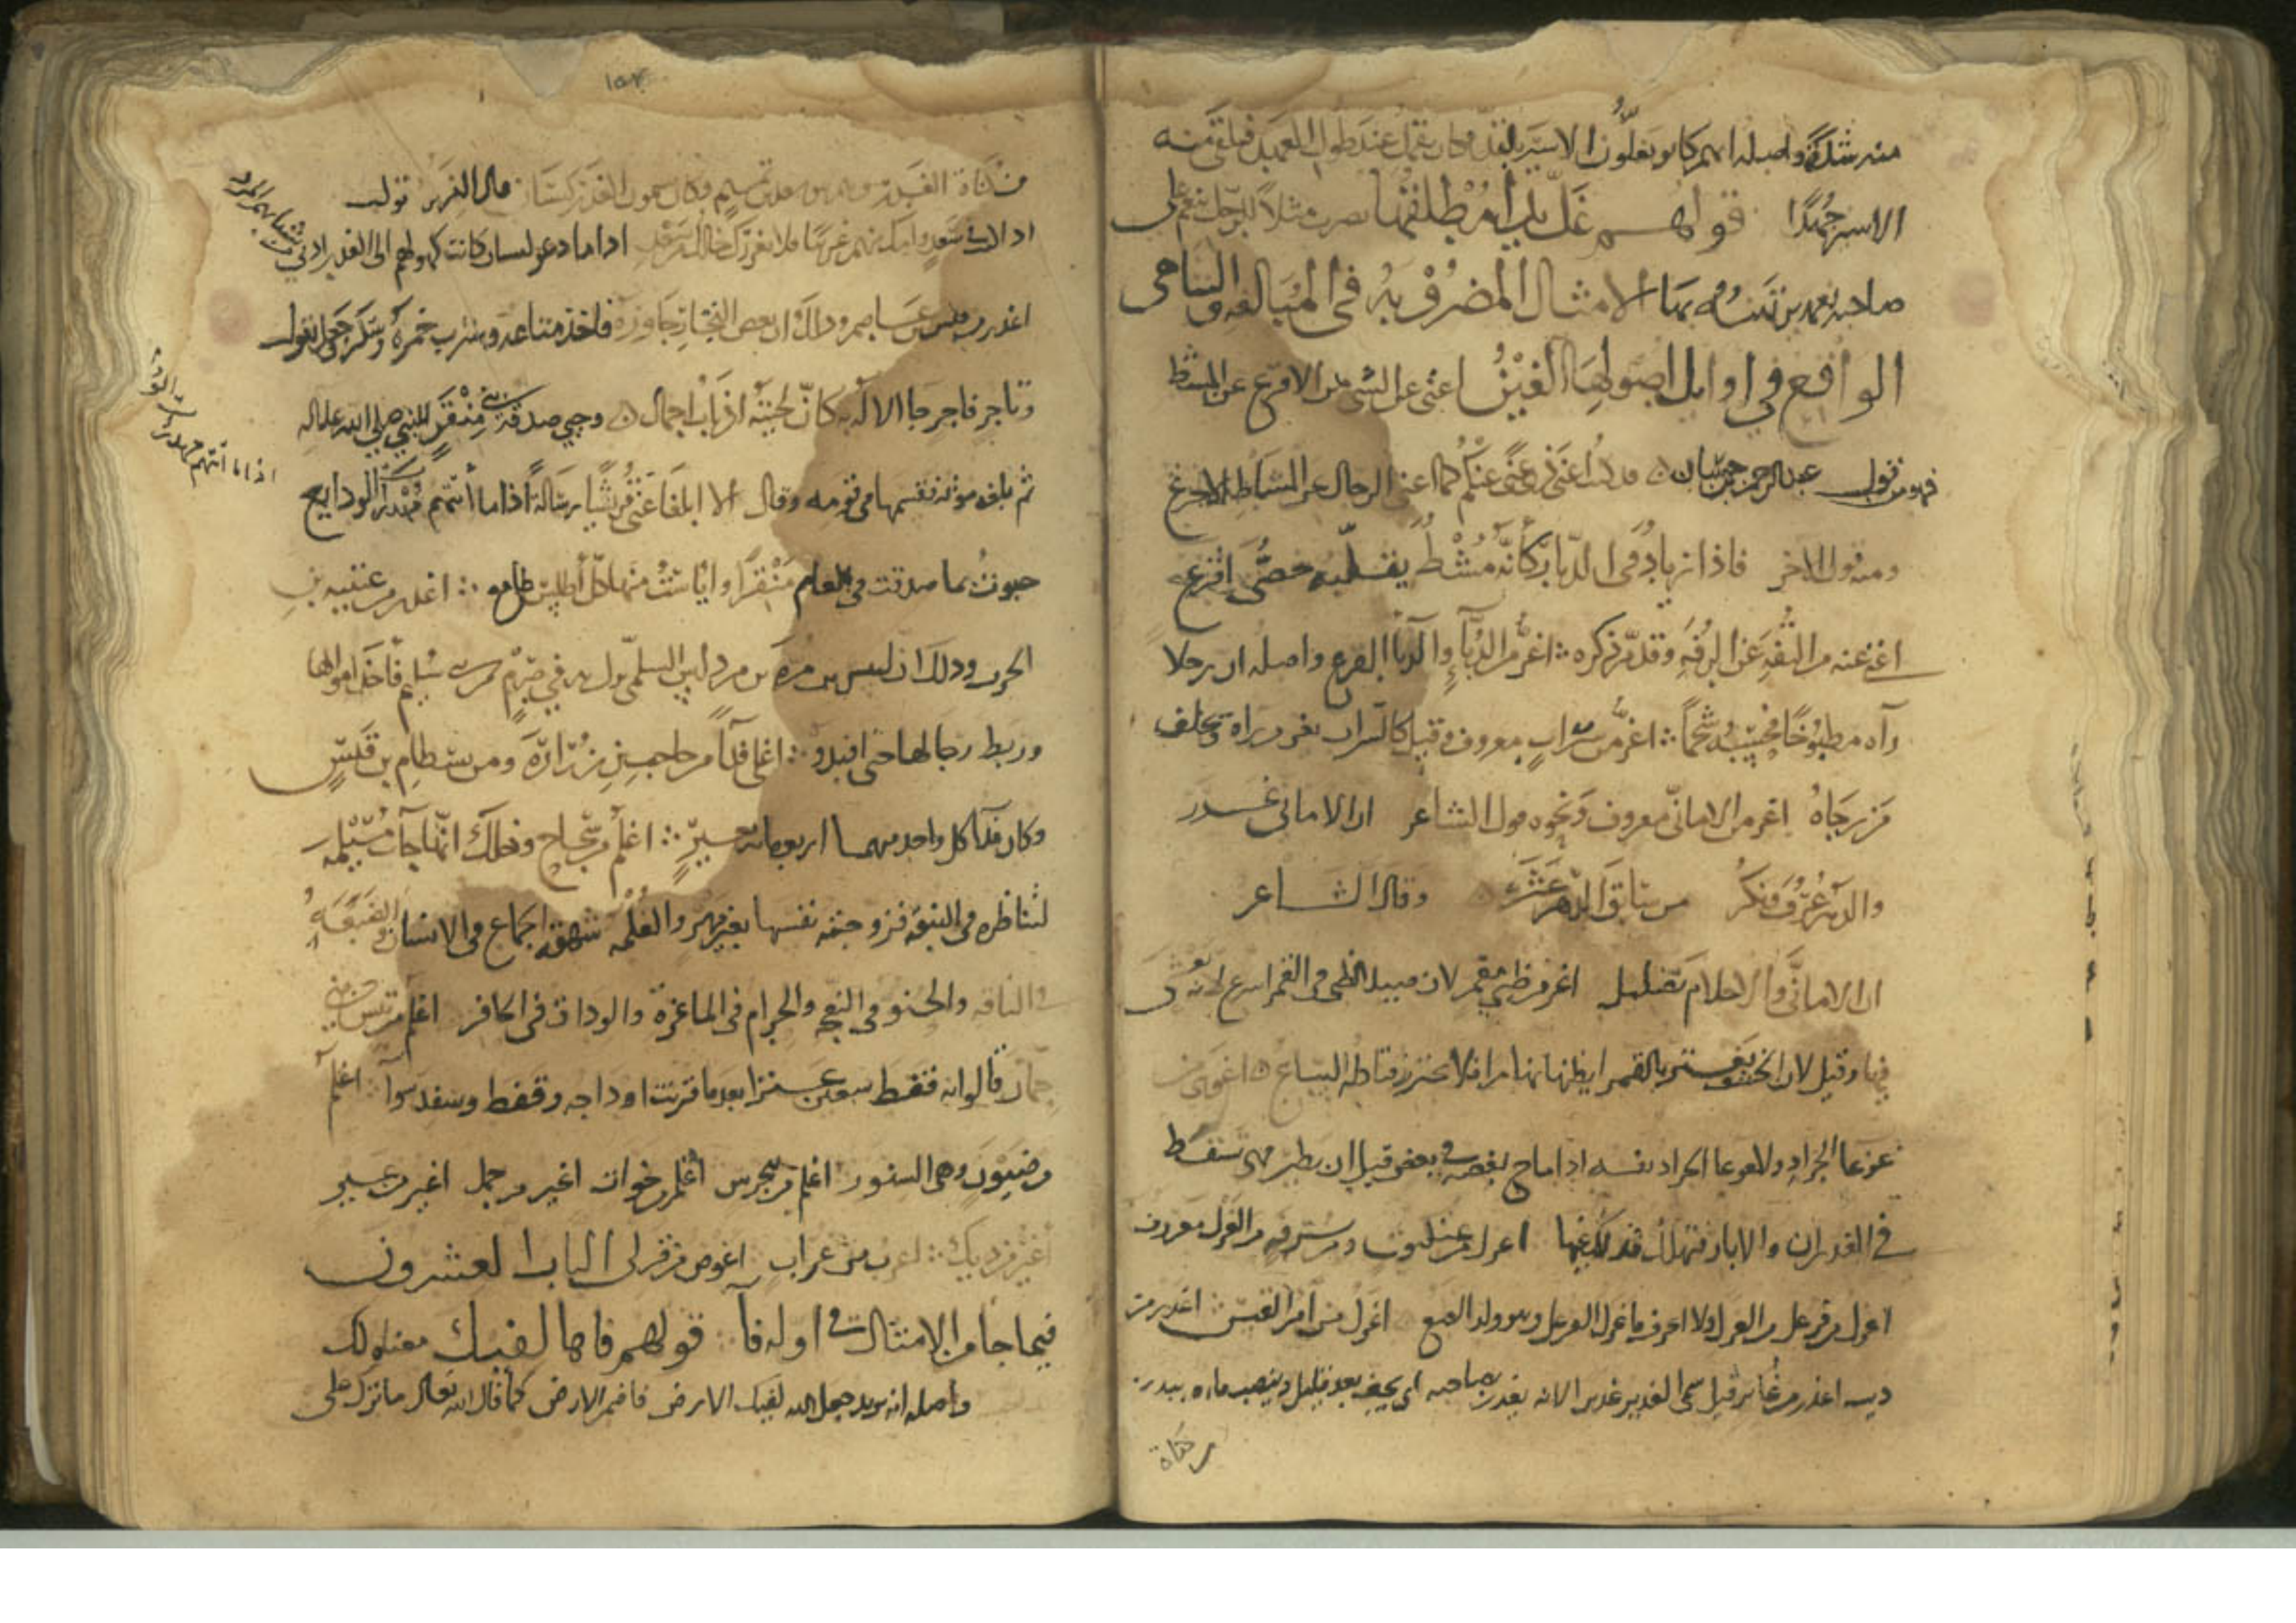 منه شدة واصله انهم كانوا يغلون الاسير بالقد وكان يقمل عند طول العهد فيلقى منه
الاسير جهدا قولهم غل يدا مطلقها يضرب مثلا للرجل ينعم على
صاحبه نعمة يرتهنه بها الامثال المضروبة في المبالغة والتناهي
الواقع في اوايل اصولها الغين اغنى عن الشي من الاقرع عن المشط
فهو من قول عبد الرحمن بن حسان قد كنت اغنى ذي غنى عنكم كما اغنى الرجال عن المشاط الاقرع
ومنه قول الاخر فاذا زيادة في الديار كانه مشط يقلبه خصي اقرع
اغنى عنه من التفه عن الرفه وقد مر ذكره اغر من الدباء والدبا القرع واصله ان رجلا
رآه مطبوخا فحسبه شحما اغر من سراب معروف وقيل كالسراب يغر من راه ويخلف
من رجاه اغر من الاماني معروف ونحوه قول الشاعر ان الاماني غرر
والدهر عرف ونكر من سابق الدهر عثر وقال الشاعر
ان الاماني والاحلام تضليل اغر من ظبي مقمر لان صيد الظبي في القمر اسرع لانه يعشى
فيها وقيل لان الخشف يغتر بالقمر ايظنها نهارا فلا يحترز فتاكله السباع اغوى من
غوغا الجراد ولا غوغا الجراد نفسه اذا ماج بعضه في بعض قبل ان يطير فهي تسقط
في الغدران والابار فتهلك اغزل من عنكبوت ومن سرفة من الغزل معروف
اغزل من فرعل من الغزل ولا اعرف ما غزل الفرعل وهو ولد الضبع اغزل من امرا القيس اغدر من
ذيب اغدر من غدير قيل سمي الغدير غديرا لانه يغدر بصاحبه اي يجف بعد قليل وينضب ماه
من كناة الغدر وهم بنو سعد بن تميم وكانوا يسمون الغدر كيسان قال النمر بن تولب
اذا كنت في سعد وامك منهم غريبا فلا يغررك خالك من سعد اذا ما دعوا كيسان كانت كهولهم الى الغدر ادنى من شبابهم المرد
اغدر من قيس بن عاصم وذلك ان بعض التجار جاوره فاخذ متاعه وشرب خمره وسكر وجعل يقول
وتاجر فاجر جا الاله به كان لحيته اذناب اجمال وجبى صدقة بني منقر للنبي صلى الله عليه
ثم بلغه موته فقسمها في قومه وقال الا ابلغا عني قريشا رسالة اذا ما أتتهم مهديات الودايع
حبوت بما صدقت في العام منقرا وايأست منها كل أطلس طامع اغدر من عتيبة بن
الحرث وذلك ان انس بن مرة بن مرداس السلمي نزل به في صرم من بني سليم فاخذ اموالها
وربط رجالها حتى افتدوا اغلى فدآ من حاجب بن زرارة ومن بسطام بن قيس
وكان فدآ كل واحد منهما اربعمائة بعير اغلم من سجاح وذلك انها جات مسيلمة
لتناظره في النبوة فزوجته نفسها بغير مهر والغلمة شهوة الجماع في الانسان والضبعة
في الناقة والحنو في النعجة والحرام في الماعزة والوداق في الحافر اغلم من تيس بني
حمان قالوا انه قفط سبعين عنزا بعد ما فريت اوداجه وقفط وسفد سوآ اغلم
من ضيون وهي السنور اغلم من هجرس أغلم من خوات اغير من جمل اغير من عير
أغير من ديك اغرب من غراب اغوص من قرلى الباب العشرون
فيما جا من الامثال في اوله فآ قولهم فاها لفيك معناه لك
واصله انه يريد جعل الله لفيك الارض فا ضمر الارض كما قال الله تعالى ما ترك على